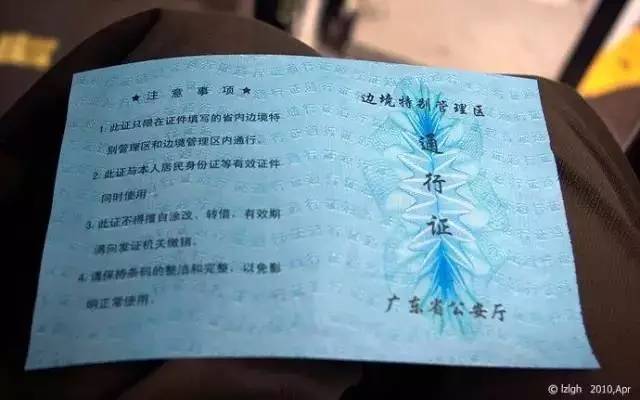 ★注意事项★
1. 此证只限在证件填写的省内边境特
别管理区和边境管理区内通行。
2. 此证与本人居民身份证等有效证件
同时使用。
3. 此证不得擅自涂改、转借，有效期
满向发证机关缴销。
4. 请保持条码的整洁和完整，以免影
响正常使用。
边境特别管理区
通
行
证
广东省公安厅
© lzlgh 2010,Apr